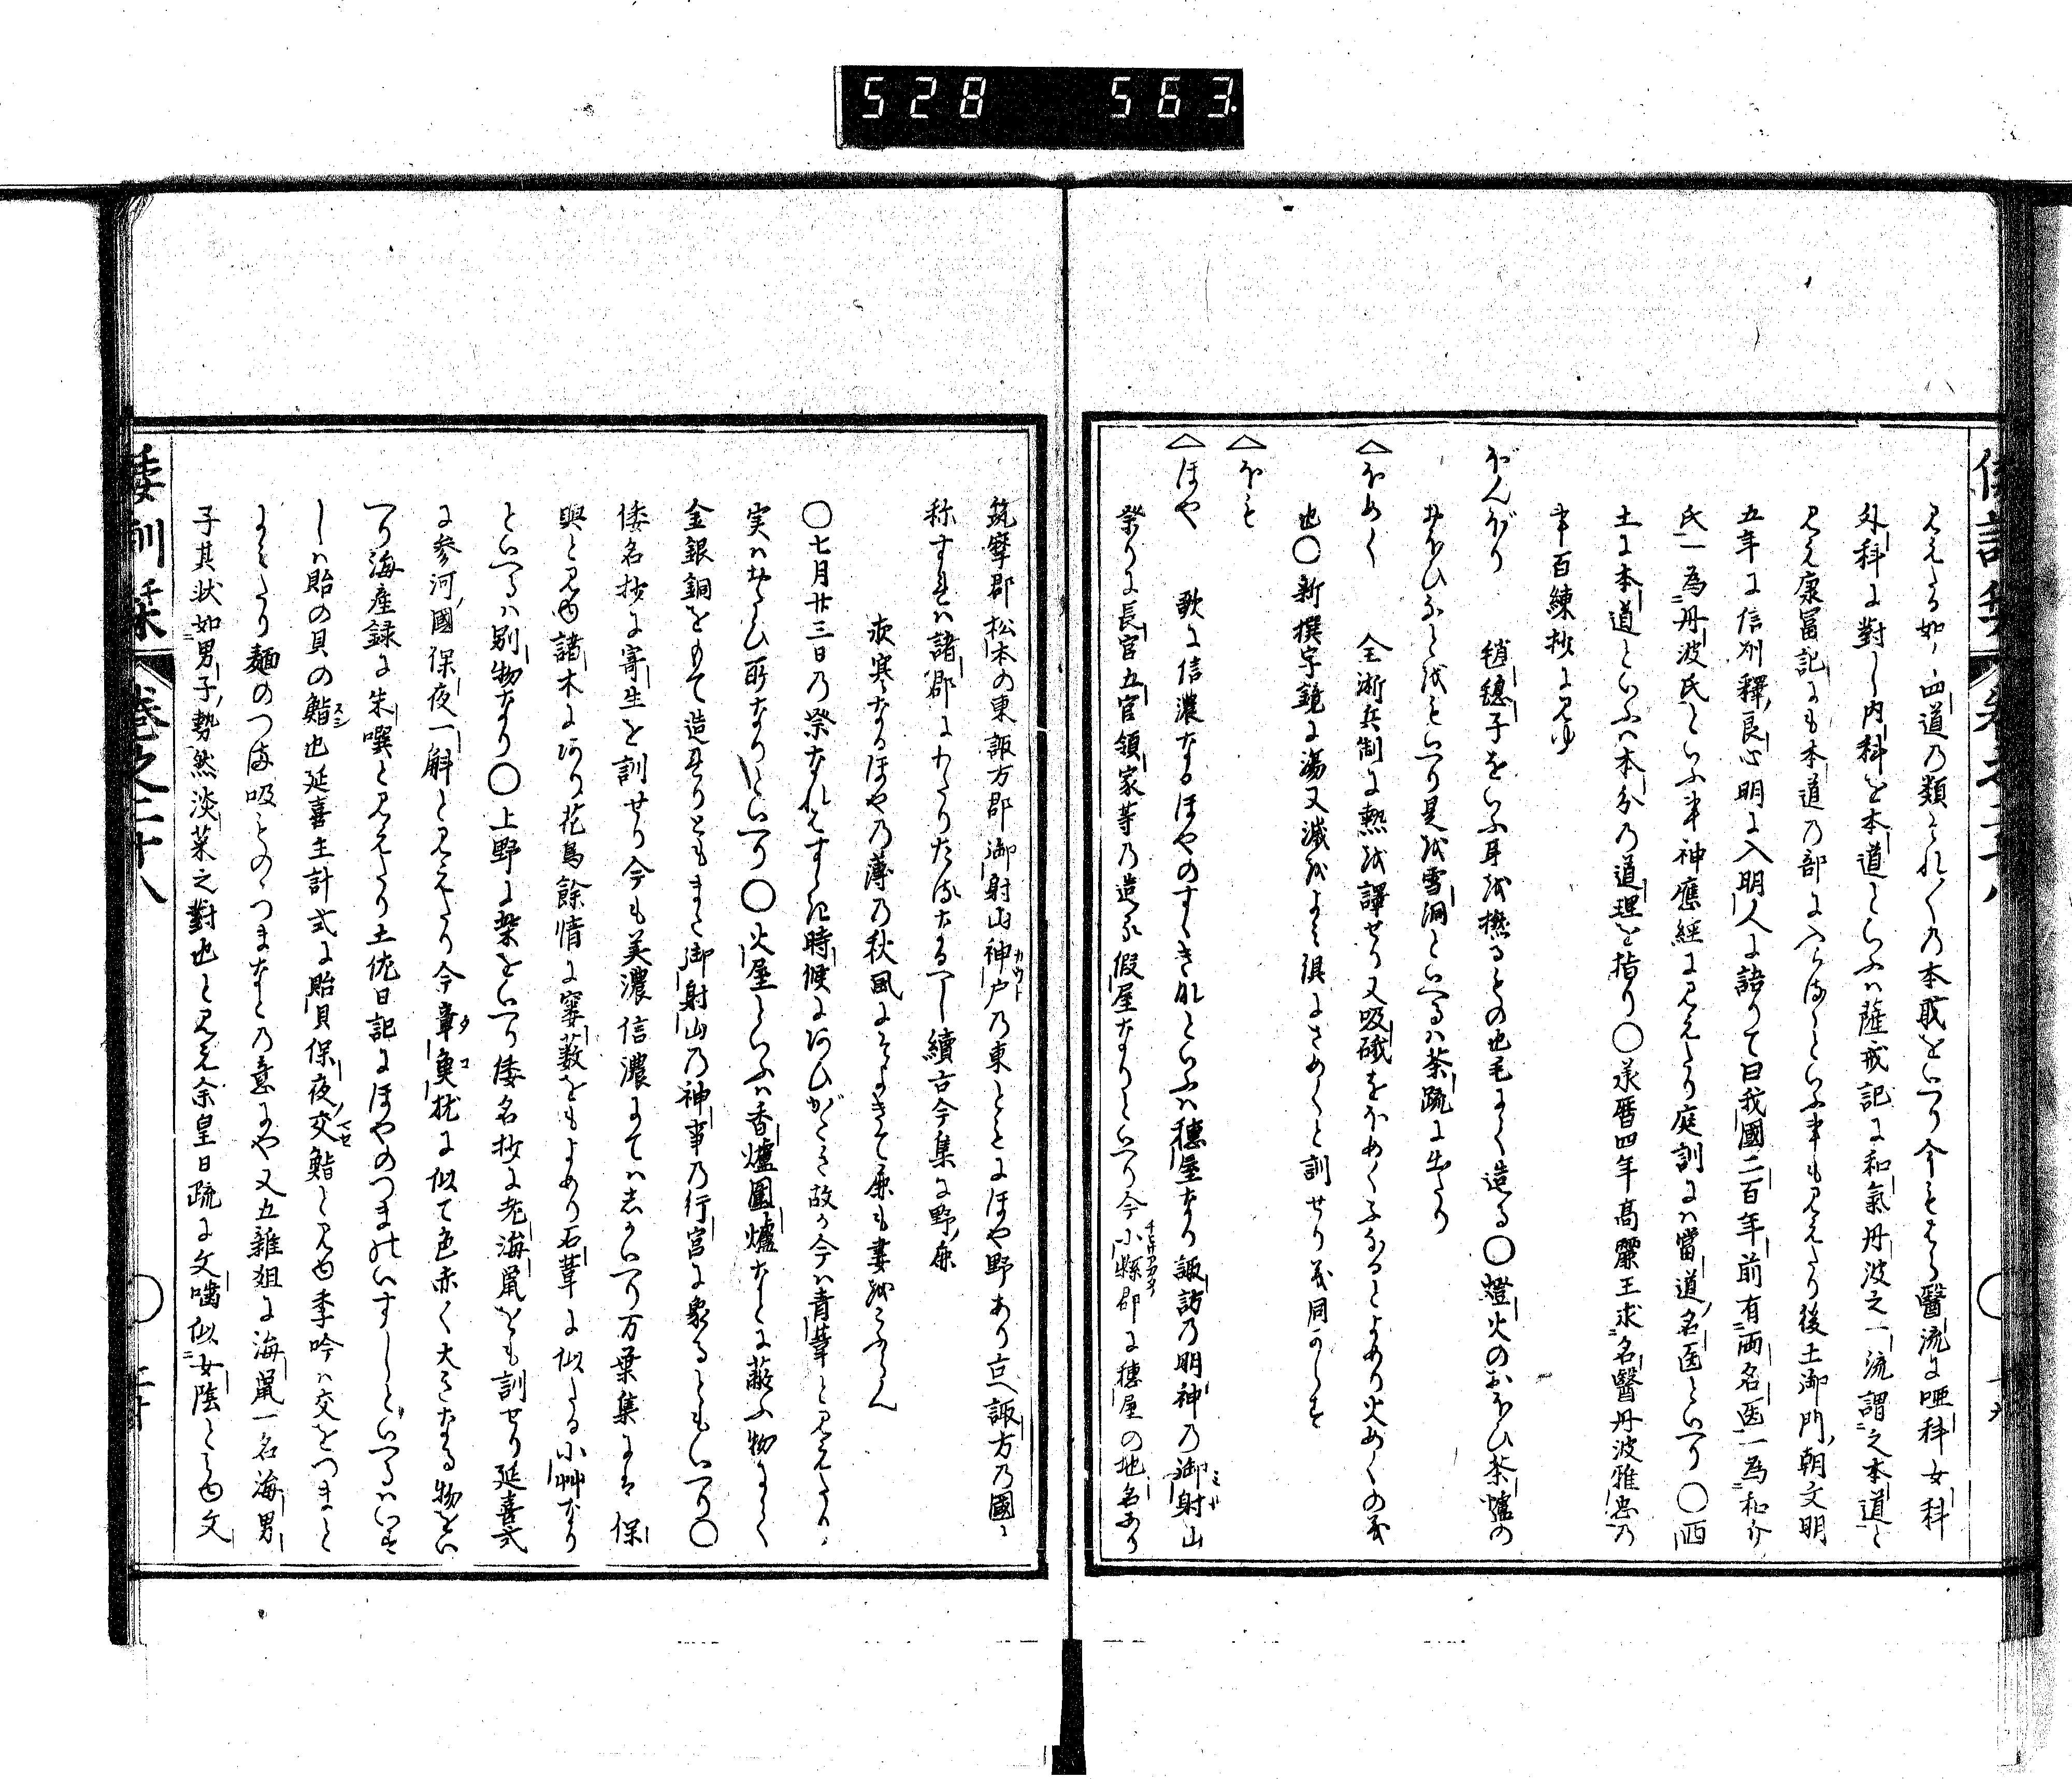 528 563
倭訓栞 巻之二十八
見えたる如ク四道乃類それ〳〵乃本職をいへり今もはら醫流に唖科女科
外科に對し内科を本道といふハ薩戒記に和氣丹波之一流謂之本道と
見え康冨記にも本道乃部に入らすといふ事も見えたり後土御門朝文明
五年に信州釋良心明に入明人に語りて曰我國二百年前有両名医一為和介
氏一為丹波氏といふ事神應經に見えたり庭訓にハ當道名医といへり〇西
土に本道といふハ本分乃道理を指り〇承暦四年高麗王求名醫丹波雅忠乃
事百練抄に見ゆ
ぼんぼり 梢穂子をいふ耳を撚るもの也毛にて造る〇燈火のおほひ茶爐の
おほひなとをもいへり是を雪洞といへるハ茶疏に出たり
△ほめく 全浙兵制に熱を譯せり又吸磁をほめくふなるとよめり火めくの義
也〇新撰字鏡に湯又滅をよみ倶にさめくと訓せり義同からす
△ほも
△ほや 歌に信濃なるほやのすゝきなといふハ穂屋なり諏訪乃明神乃御射山
祭りに長官五官領家等乃造る假屋なりといへり今小縣郡に穂屋の地名あり
筑摩郡松本の東諏方郡御射山神戸乃東もとにほや野あり古へ諏方乃國と
称すれハ諸郡にわたりたるなるへし續古今集に野鹿
夜寒なるほや乃薄乃秋風にそよきて鹿も妻をこふらん
〇七月廿三日乃祭なれはすゝき時候にあひがたき故か今ハ青葦と見えたり
実ハおほひ所なりといへり〇火屋といふハ香爐圍爐なとに蔽ふ物にして
金銀銅をもて造れりともまた御射山乃神事乃行宮に象るともいへり〇
倭名抄に寄生を訓せり今も美濃信濃にてハしかいへり万葉集にハ保
與と見ゆ諸木にあり花鳥餘情に窶藪をもよめり石葦に似たる小艸なり
といへるハ別物なり〇上野に栗をいへり倭名抄に老海鼠をも訓せり延喜式
に参河國保夜一斛と見えたり今章魚枕に似て色赤く大きなる物をい
へり海産録に朱噀と見えたり土佐日記にほやのつまのいすしといへるハいす
しハ貽の貝の鮨也延喜主計式に貽貝保夜交鮨と見ゆ季吟ハ交をつまと
よみたり麺のつま吸ものゝつまなと乃意にや又五雜俎に海鼠一名海男
子其状如男子勢然淡菜之對也と見え余皇日疏に文囓似女陰とも見ゆ文
倭訓栞 巻之二十八